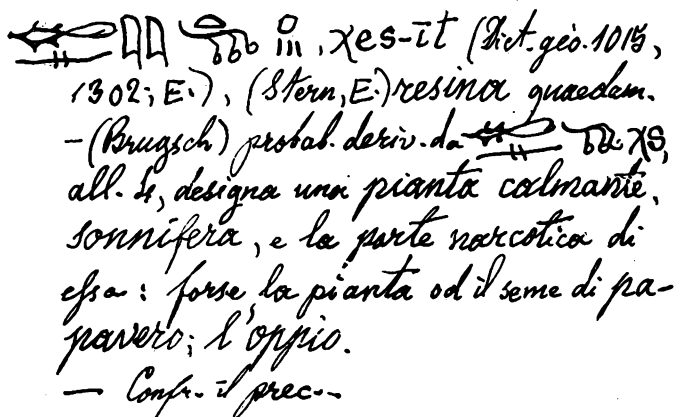 , χes-īt (Dict. géo. 1015,
1302; E.), (Stern, E.) resina quaedam.
– (Brugsch) probab. deriv. da χs,
all. 4, designa una pianta calmante,
sonnifera, e la parte narcotica di
essa: forse la pianta od il seme di pa-
pavero; l'oppio.
— Confr. il prec.